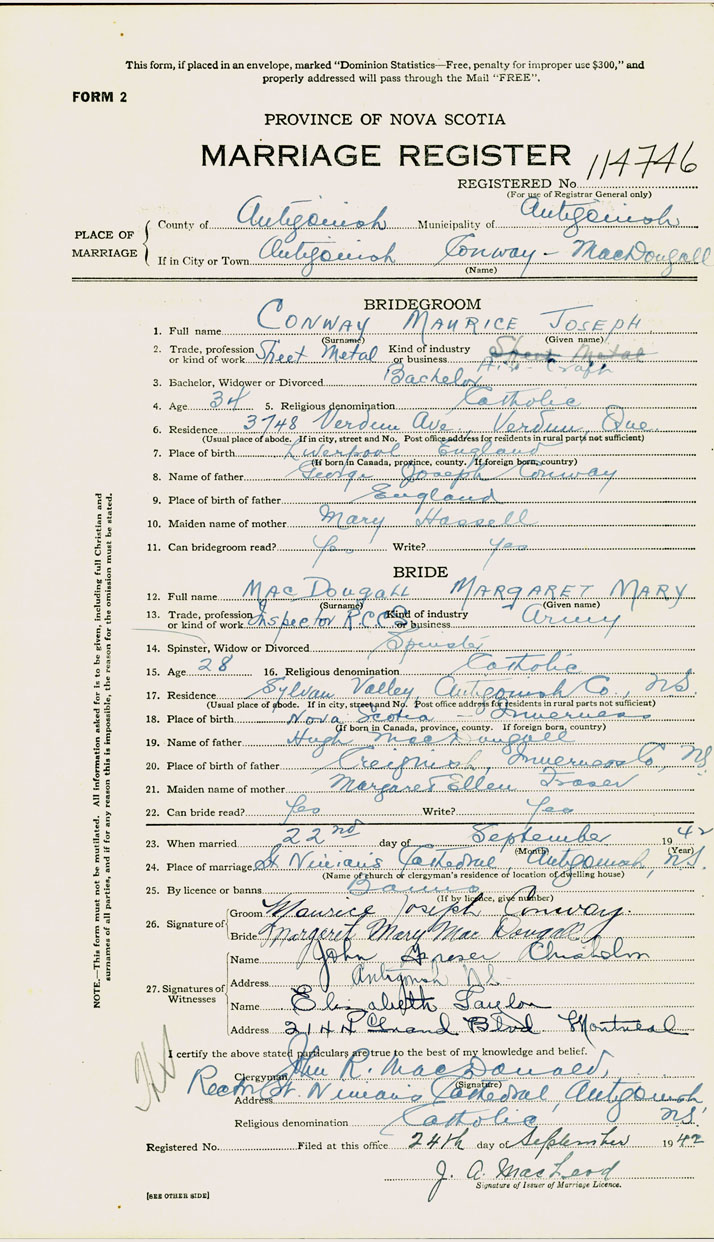 This form, if placed in an envelope, marked "Dominion Statistics—Free, penalty for improper use $300," and
properly addressed will pass through the Mail "FREE".
FORM 2
PROVINCE OF NOVA SCOTIA
MARRIAGE REGISTER
REGISTERED No. 114746
(For use of Registrar General only)
PLACE OF MARRIAGE
County of Antigonish Municipality of Antigonish
If in City or Town Antigonish Conway - MacDougall
(Name)
BRIDEGROOM
1. Full name CONWAY MAURICE JOSEPH
(Surname) (Given name)
2. Trade, profession or kind of work Sheet Metal Kind of industry or business Sheet Metal
3. Bachelor, Widower or Divorced Bachelor
4. Age 34 5. Religious denomination Catholic
6. Residence 3748 Verdun Ave., Verdun, Que
(Usual place of abode. If in city, street and No. Post office address for residents in rural parts not sufficient)
7. Place of birth Liverpool England
(If born in Canada, province, county. If foreign born, country)
8. Name of father George Joseph Conway
9. Place of birth of father England
10. Maiden name of mother Mary Hassell
11. Can bridegroom read? Yes Write? yes
BRIDE
12. Full name MACDOUGALL MARGARET MARY
(Surname) (Given name)
13. Trade, profession or kind of work Inspector Kind of industry or business Army
14. Spinster, Widow or Divorced Spinster
15. Age 28 16. Religious denomination Catholic
17. Residence Sylvan Valley, Antigonish Co., N.S.
(Usual place of abode. If in city, street and No. Post office address for residents in rural parts not sufficient)
18. Place of birth Nova Scotia - Inverness
(If born in Canada, province, county. If foreign born, country)
19. Name of father Hugh MacDougall
20. Place of birth of father Creignish, Inverness Co, NS
21. Maiden name of mother Margaret Ellen Fraser
22. Can bride read? Yes Write? Yes
23. When married 22nd day of September 1942
(Month) (Year)
24. Place of marriage St Ninian's Cathedral Antigonish, N.S.
(Name of church or clergyman's residence or location of dwelling house)
25. By licence or banns Banns
(If by licence, give number)
26. Signature of
Groom Maurice Joseph Conway.
Bride Margaret Mary MacDougall
27. Signatures of Witnesses
Name John Fraser Chisholm
Address Antigonish N.S.
Name Elizabeth Taylor
Address 2144 Grand Blvd. Montreal
I certify the above stated particulars are true to the best of my knowledge and belief.
Clergyman John R. MacDonald,
(Signature)
Address Rector St. Ninian's Cathedral, Antigonish NS
Religious denomination Catholic
Registered No. Filed at this office 24th day of September 1942
J. A. MacLeod
Signature of Issuer of Marriage Licence.
[SEE OTHER SIDE]
NOTE.—This form must not be mutilated. All information asked for is to be given, including full Christian and
surnames of all parties, and if for any reason this is impossible, the reason for the omission must be stated.